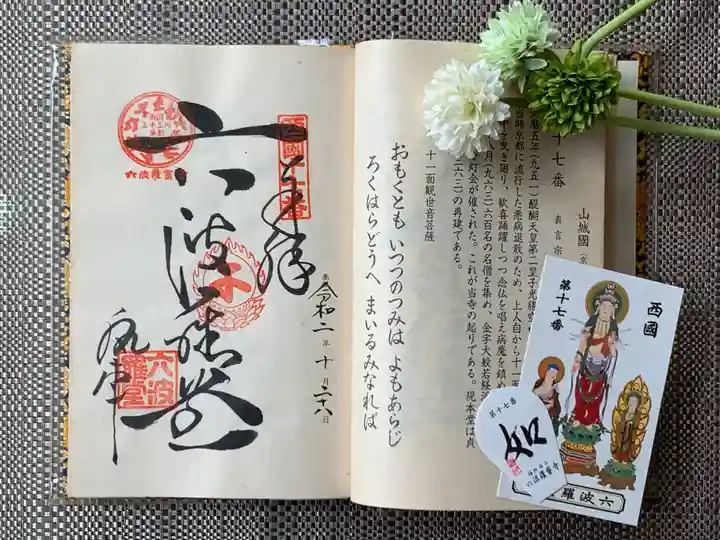 奉拝
西國十七番
六波羅堂
六波羅堂
令和二年十月二十八日
十七番
山城國
真言宗
暦五年（九五一）醍醐天皇第二皇子光勝空
当時京都に流行した悪病退散のため、上人自から十一面
を曳き廻り、歓喜踊躍しつつ念仏を唱え病魔を鎮め
八月（九六三）六百名の名僧を集め、金字大般若経
灯会が催された。これが当寺の起りである。現本堂は貞
六三）の再建である。
十一面観世音菩薩
おもくとも いつつのつみは よもあらじ
ろくはらどうへ まいるみなれば
西國
第十七番
六波羅
第十七番
如
六波羅蜜寺